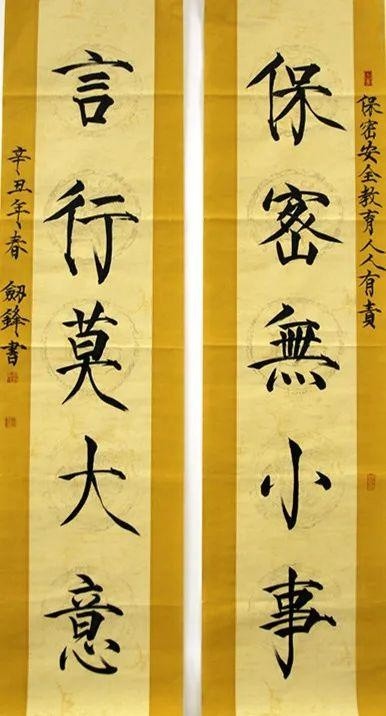 保密安全教育人人有責
保密無小事
言行莫大意
辛丑年春 劔鋒書